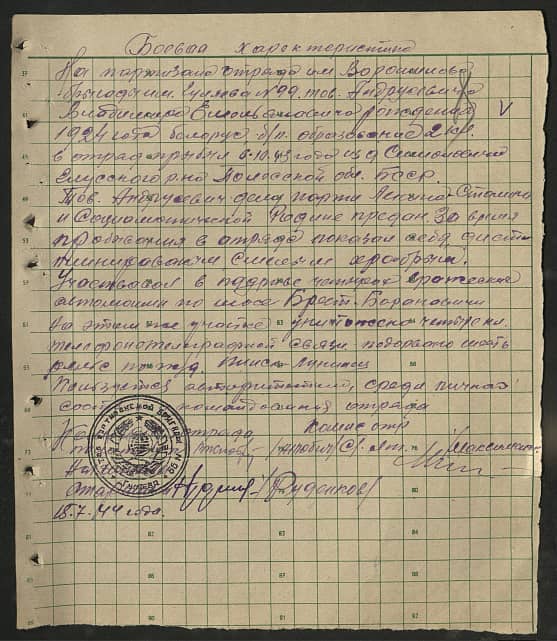 Боевая характеристика
На партизана отряда им. Ворошилова
бригады им. Гуляева № 99 тов. Андруcевича
Владимира Емельяновича рождения
1924 года белорус б/п. образование 2 кл.
в отряд прибыл 6.10.43 года из д. Симоновичи
р-на Полесской обл. БССР.
Тов. Андрусевич делу партии Ленина-Сталина
и Социалистической Родине предан. За время
пребывания в отряде показал себя
смелым храбрым.
Участвовал в подрыве четырех вражеских
автомашин по шосе Брест-Барановичи
на этом же участке уничтожено четыре кл.
телефонотелеграфной связи подорвано шесть
рельс по ж.д. Пинск-Лунинец
Пользуется авторитетом, среди личного
командования отряда
отряда Комиссар
Ст. Лт. /Максимкин
/Руденков/
18.7.44 года.